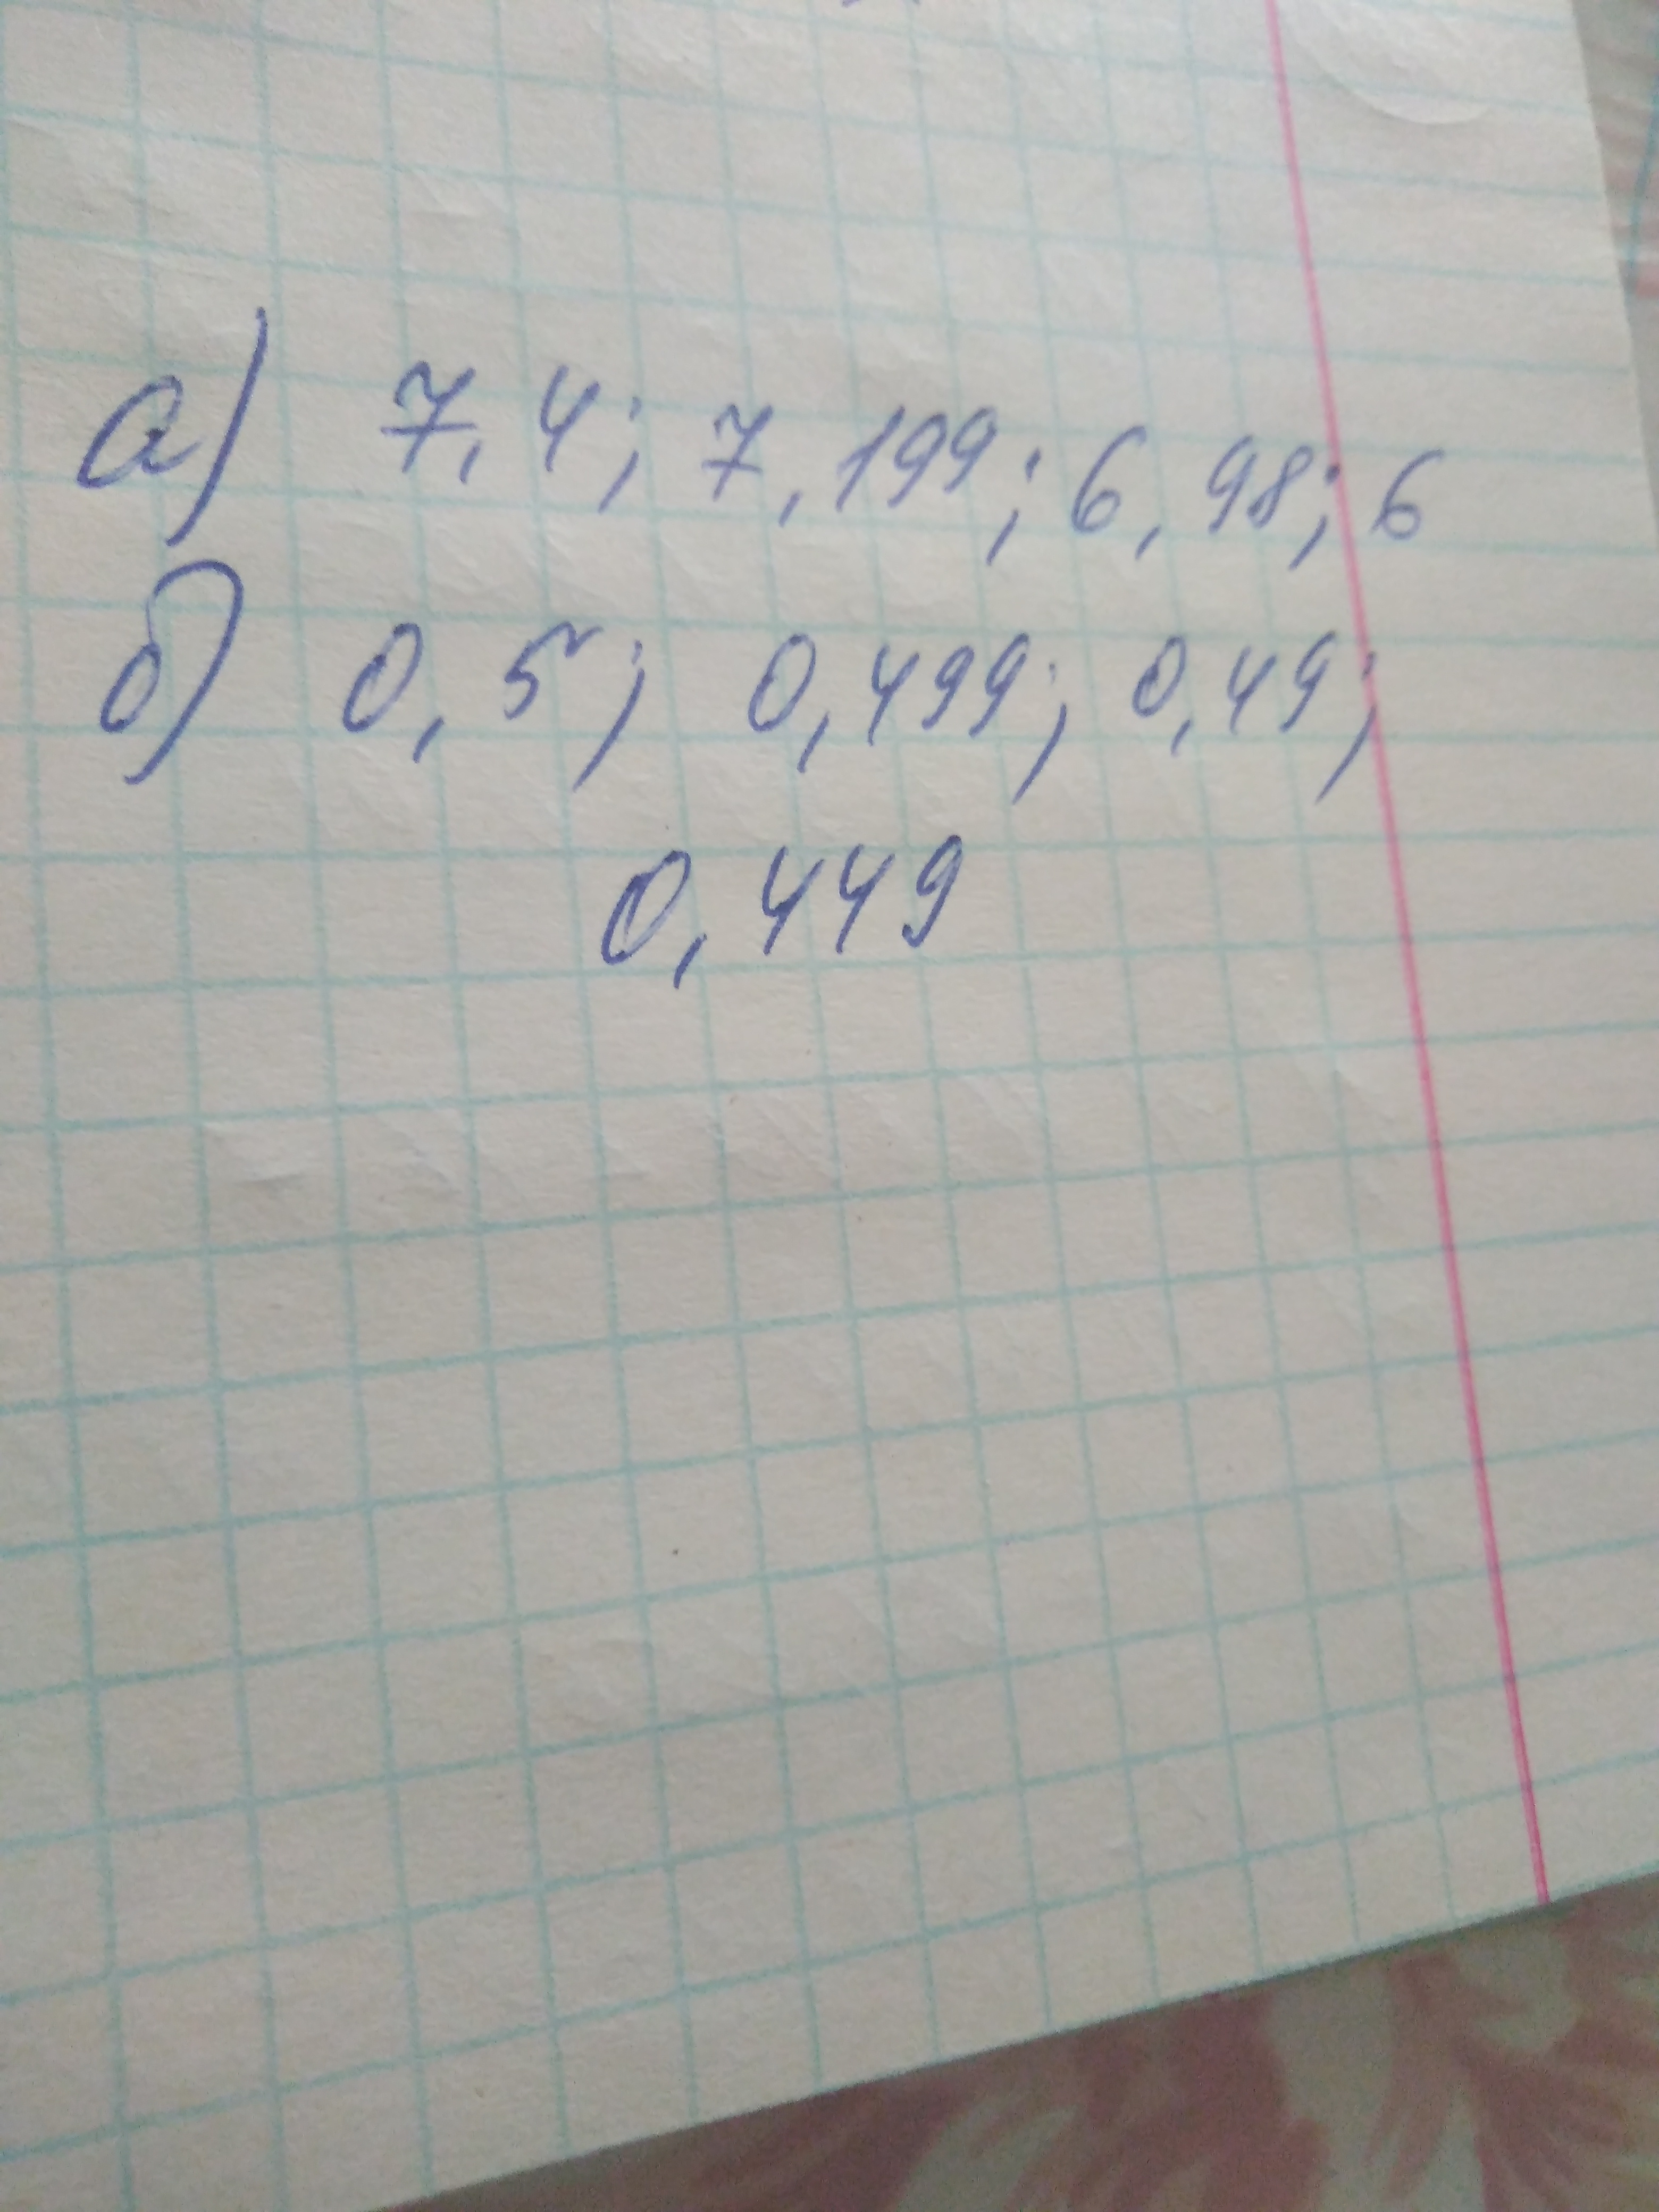 а) 7,4; 7,199; 6,98; 6
б) 0,5; 0,499; 0,49;
0,449